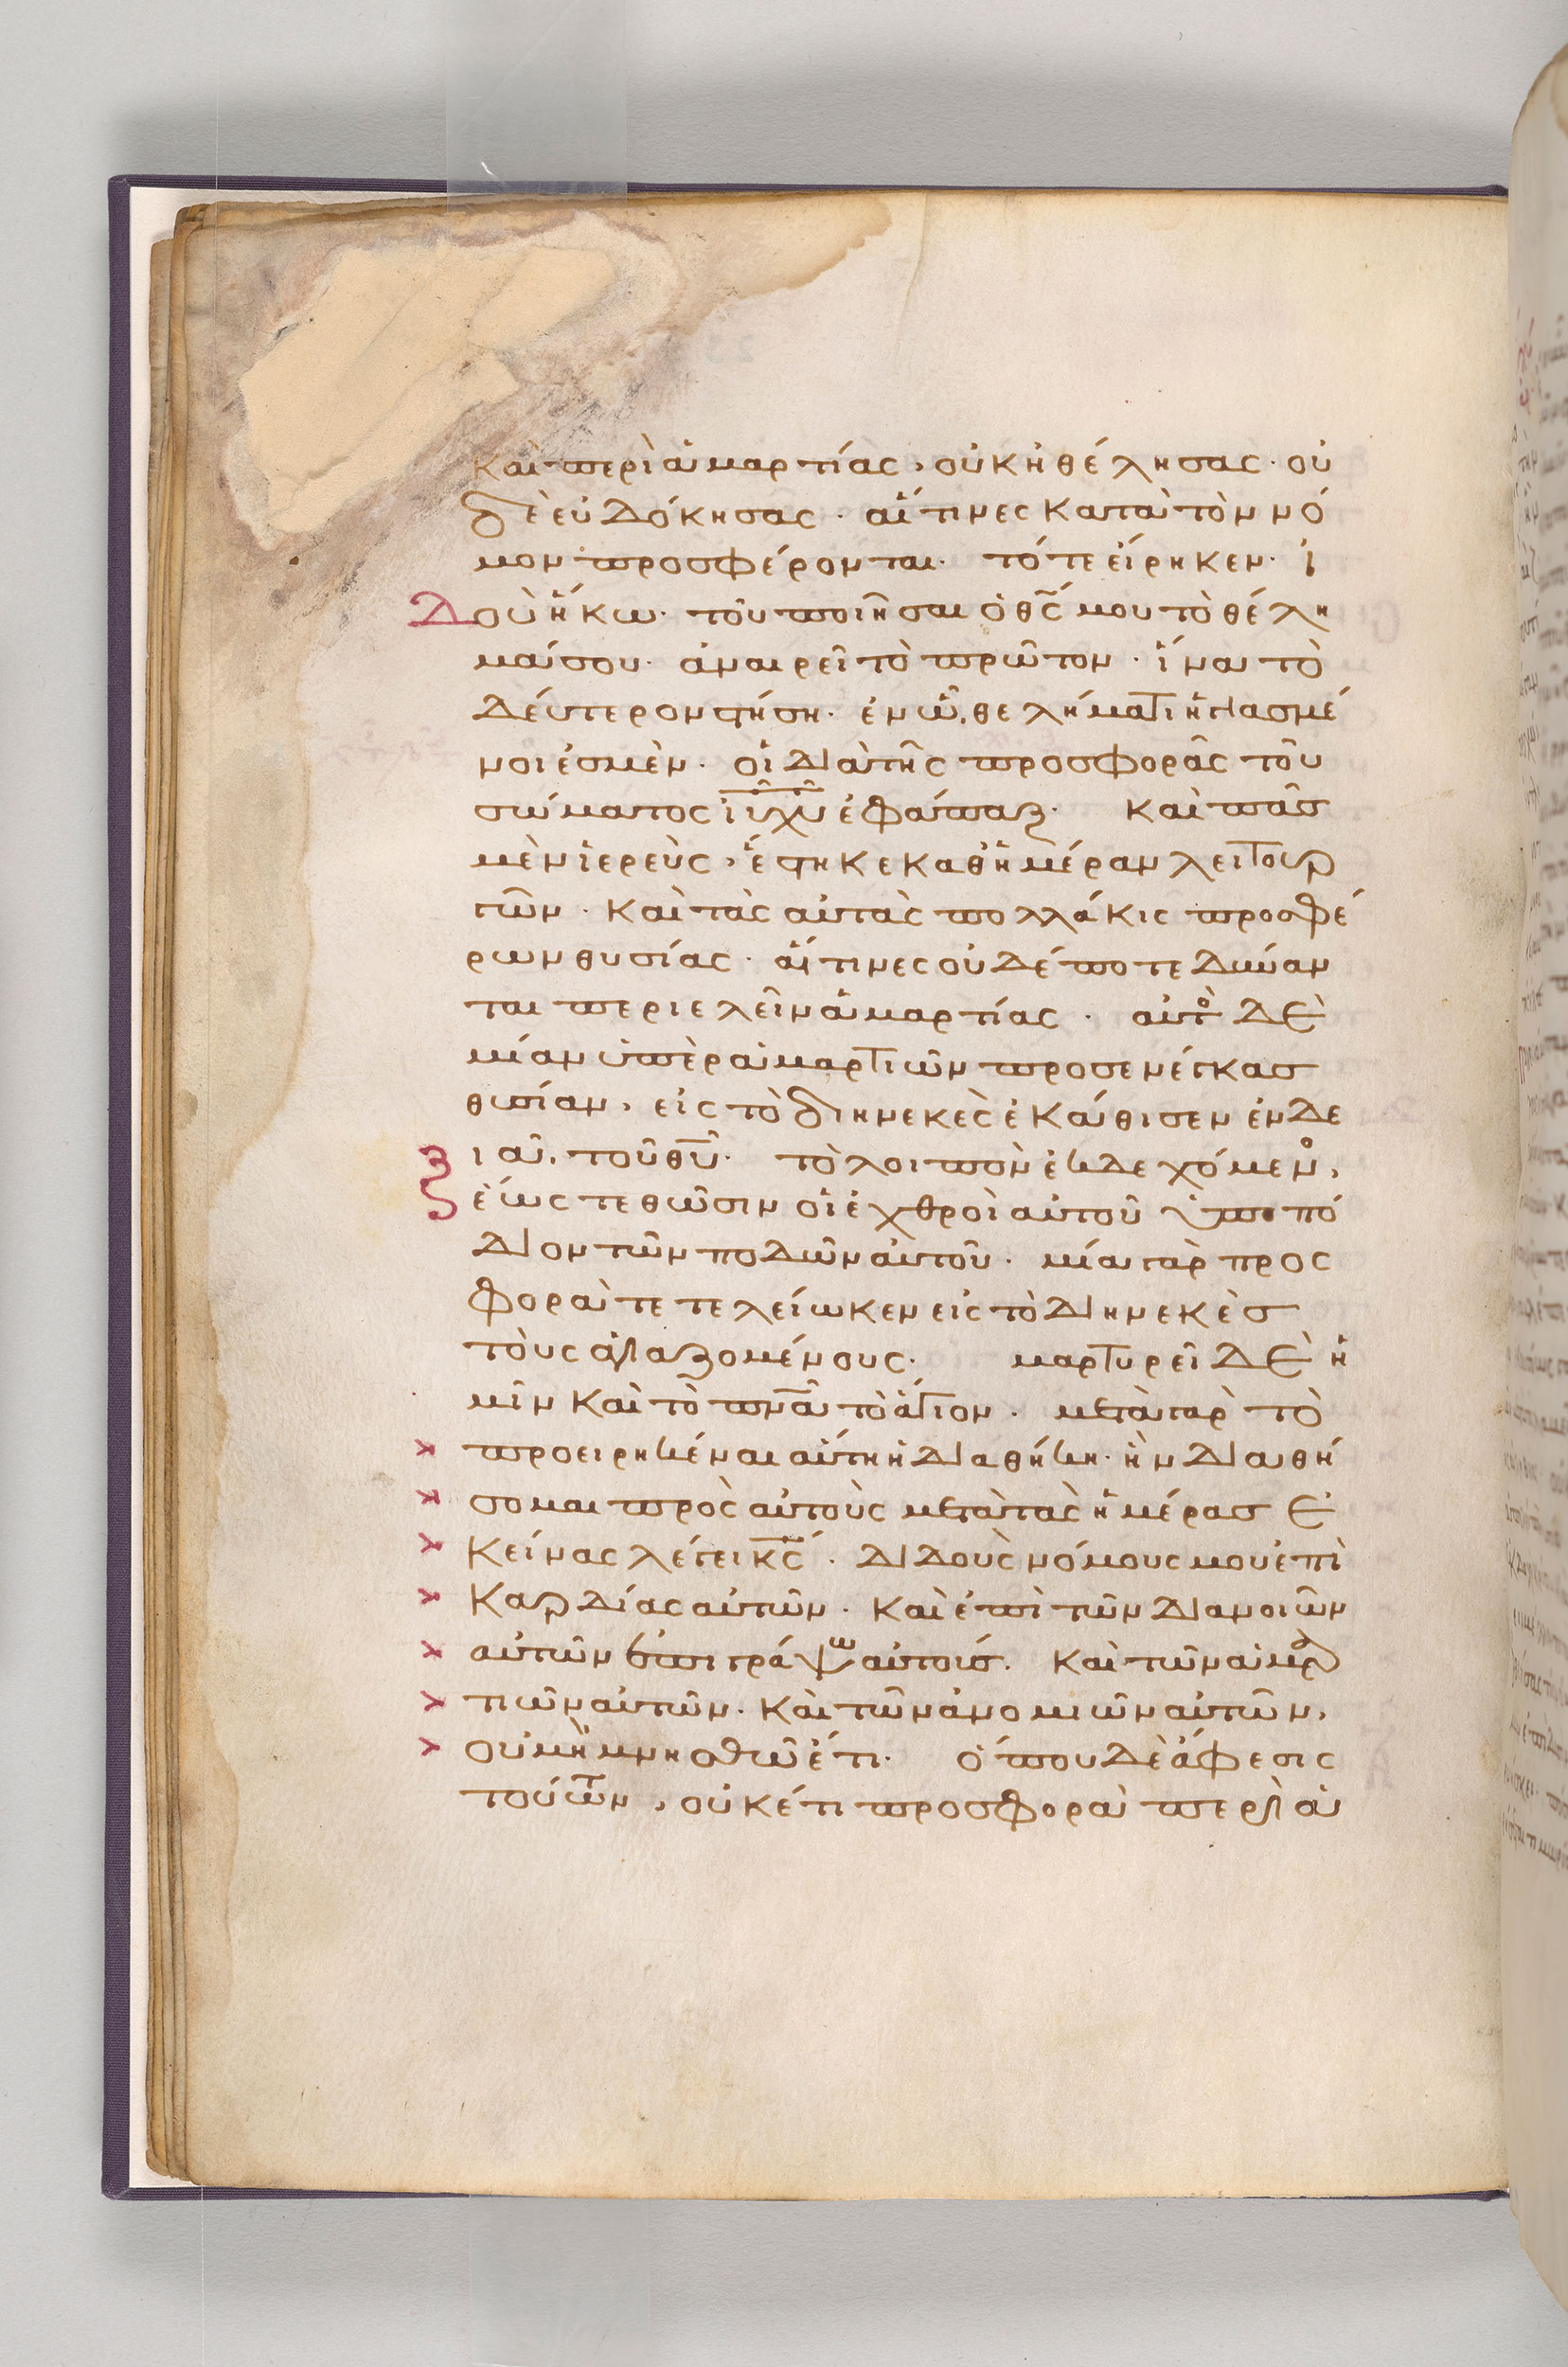 καὶ περὶ ἁμαρτίας, οὐκ ἠθέλησας· οὐ
δὲ εὐδόκησας· αἵτινες κατὰ τὸν νό
μον προσφέρονται· τότε εἴρηκεν· ἰ
δοὺ ἥκω· τοῦ ποιῆσαι ὁ θ̅ς̅ μου τὸ θέλη
μά σου· ἀναιρεῖ τὸ πρῶτον· ἵνα τὸ
δεύτερον στήση· ἐν ὧ, θελήματι ἡγιασμέ
νοι ἐσμὲν· οἱ διὰ τῆς προσφορᾶς τοῦ
σώματος ι̅υ̅ χ̅υ̅ ἐφάπαξ· καὶ πᾶσ
μὲν ἱερεὺς, ἕστηκε καθημέραν λειτουρ
γῶν· καὶ τὰς αὐτὰς πολλάκις προσφέ
ρων θυσίας· αἵτινες οὐδέποτε δύναν
ται περιελεῖν ἁμαρτίας· αὐτὸ δὲ
μίαν ὑπὲρ ἁμαρτιῶν προσενέγκασ
θυσίαν, εἰς τὸ διηνεκὲς ἐκάθισεν ἐν δε
ξιᾶ, τοῦ θ̅υ̅· τὸ λοιπὸν ἐκδεχόμενο,
ἕως τεθῶσιν οἱ ἐχθροὶ αὐτοῦ ὑποπό
διον τῶν ποδῶν αὐτοῦ· μία γὰρ προς
φορὰ τετελείωκεν εἰς τὸ διηνεκὲσ
τοὺς ἁγιαζομένους· μαρτυρεῖ δὲ ἡ
μῖν καὶ τὸ π̅ν̅α̅ τὸ ἅγιον· μετὰ γὰρ τὸ
προειρηκέναι αὕτη ἡ διαθήκη· ἣν διαθή
σομαι πρὸς αὐτοὺς μετὰ τὰς ἡμέρασ ἐ
κείνας λέγει κ̅ς̅· διδοὺς νόμους μου ἐπὶ
καρδίας αὐτῶν· καὶ ἐπὶ τῶν διανοιῶν
αὐτῶν ἐπιγράψω αὐτούσ. καὶ τῶν ἁμαρ
τιῶν αὐτῶν· καὶ τῶν ἀνομιῶν αὐτῶν,
οὐ μὴ μνησθῶ ἔτι· ὅπου δὲ ἄφεσις
τούτων, οὐκέτι προσφορὰ περὶ ἁ